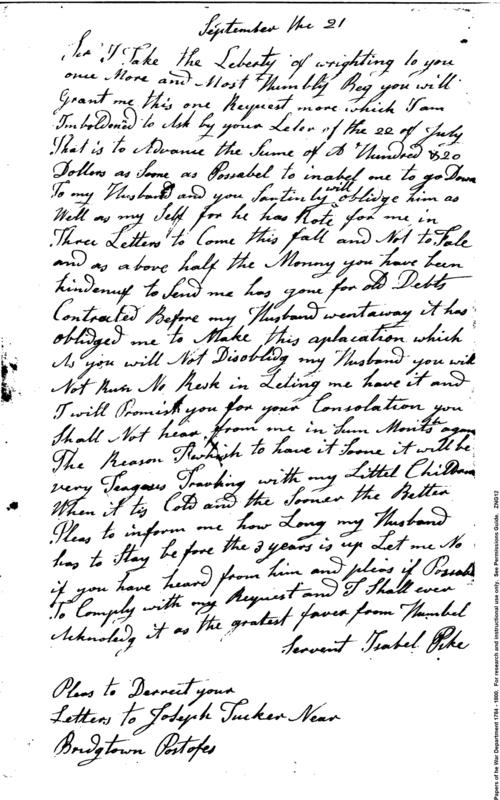 September the 21
Sir I Take the Leberty of wrighting to you
once More and Most Humbly Beg you will
Grant me this one Request more which I am
Imboldened to Ask by your Leter of the 22 of July
That is to Advance the Sume of A Hundred & 20
Dollers as Soone as Possabel to inabel one to go Down
To my Husband and you Santinly will oblidge him as
Well as my Self for he has Rote for me in
Three Letters to Come this fall and Not to Fale
and as above half the Monny you have been
kindenuf to Send me has gone for old Debts
Contracted Before my Husband went away it has
oblidged me to Make this aplacation which
As you will Not Disoblidg my Husband you will
Not Run No Resk in Leting me have it and
I will Promis you for your Consolation you
Shall Not hear from me in Sum Monts agan
The Reason I whish to have it Soone it will be
very Tegaus Travling with my Littel Children
When it tis Cold and the Sooner the Better
Pleas to inform me how Long my Husband
has to Stay before the 3 years is up Let me No
if you have heard from him and pleas if Possabl
To Comply with my Request and I Shall ever
Acknoledg it as the gratest faver from Humbel
Servent Isabel Pike
Pleas to Derrect your
Letters to Joseph Tucker Near
Bridgtown Postofes
Papers of the War Department 1784 - 1800. For research and instructional use only. See Permissions Guide. ZNG12